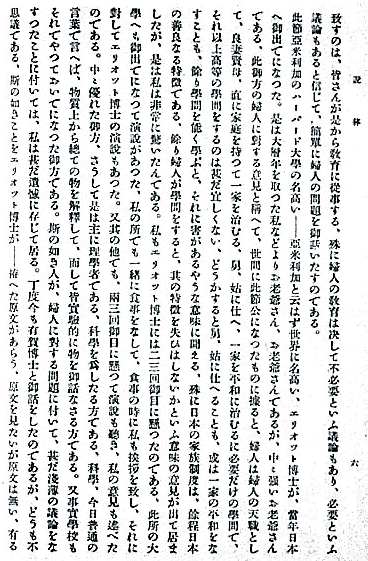 說林
六
致すのは、皆さんが是から教育に從事する、殊に婦人の教育は決して不必要といふ議論もあり、必要といふ
議論もあると信じて、簡單に婦人の問題を御話いたすのである。
此節亞米利加のハーバード大學の名高い――亞米利加と云はず世界に名高い、エリオット博士が、當年日本
へ御出でになつた、是は大層年を取つた私などよりお老爺さん、お老爺さんであるが、中々强いお老爺さん
である、此御方の婦人に對する意見と稱へて、世間に此節公になつたものに據ると、婦人は婦人の天職とし
て、良妻賢母、直に家庭を持つて一家を治むる、舅、姑に仕へ、一家を平和に治むるに必要だけの學問で、
それ以上高等の學問をするのは甚だ宜しくない、どうかすると舅、姑に仕へることも、或は一家の平和をな
すことも、餘り學問を能く學ぶと、それに害があるやうな意味に聞える、殊に日本の家族制度は、餘程日本
の善良なる特徵である、餘り婦人が學問をすると、其の特徵を失ひはしないかといふ意味の意見が出て居ま
したが、是は私は非常に驚いたんである。私もエリオット博士には二三回御目に懸つたのである。此所の大
學へも御出でになつて演說があつた、私の所でも一緖に食事をなして、食事の時に私も挨拶を致し、それに
對してエリオット博士の演說もあつた。又其の他でも、兩三回御目に懸つて演說も聽き、私の意見も述べた
のである。中々優れた御方、さうして是は主に理學者である、科學を爲したる方である、科學、今日普通の
言葉で言へば、物質上から總ての物を解釋して、而して皆實驗的に物を御話なさる方である。又事實學校も
それでやつておいでになつた御方である。斯の如き人が、婦人に對する問題に付いて、甚だ淺薄の議論をな
すつたことに付いては、私は甚だ遺憾に存じて居る。丁度今も有賀博士と御話をしたのであるが、どうも不
思議である、斯の如きことをエリオット博士が――拵へた原文があらう、原文を見たいが原文は無い、有る